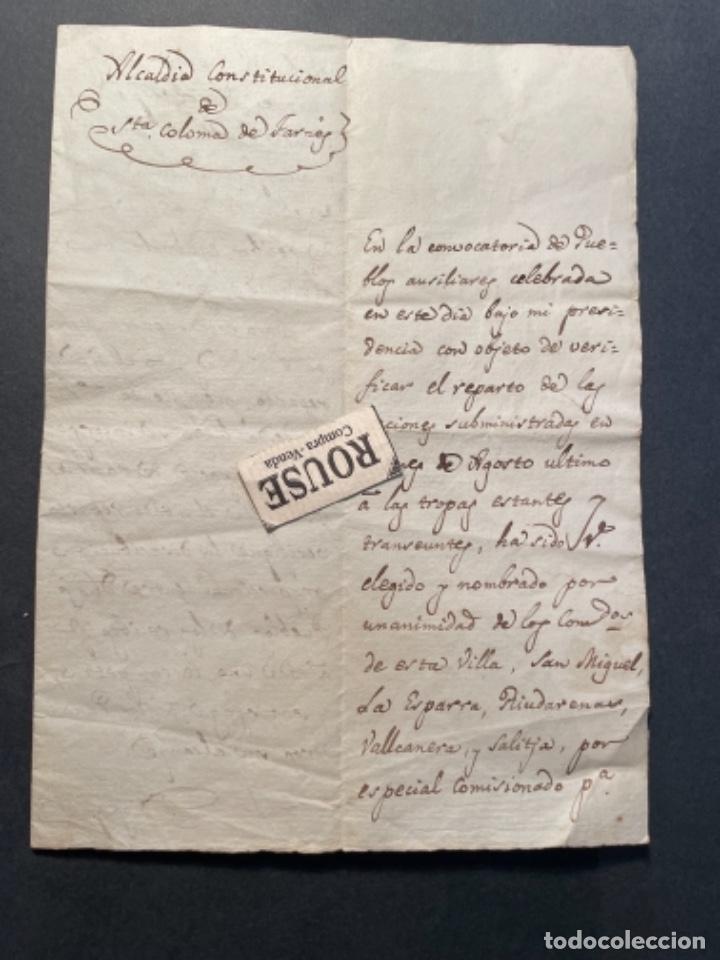 Alcaldia Constitucional
de
Sta. Coloma de Farnes
En la convocatoria de Pue=
blos ausiliares celebrada
en este dia bajo mi presi=
dencia con objeto de veri=
ficar el reparto de las
ciones subministradas en
es de Agosto ultimo
á las tropas estantes y
transeuntes, ha sido V.
elegido y nombrado por
unanimidad de los Comdos
de esta Villa, San Miguel,
La Esparra, Riudarenas,
Vallcanera, y Salitja, por
especial Comisionado pa.
ROUSE
Compra-Venda
todocoleccion